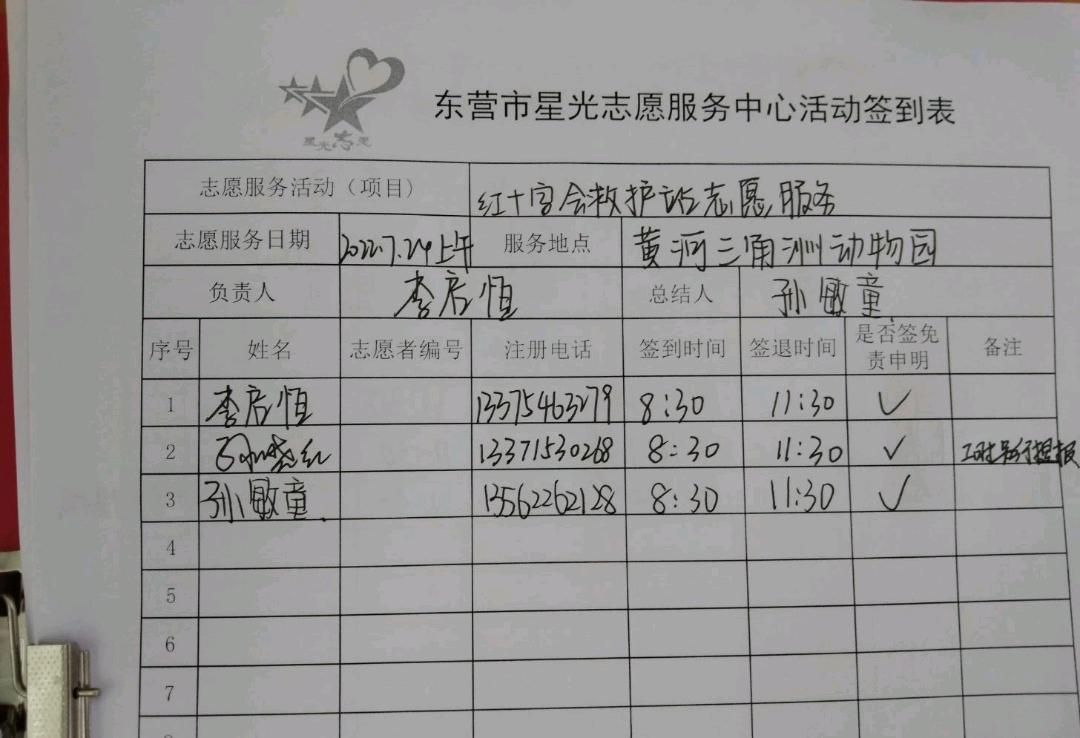 星光志愿
东营市星光志愿服务中心活动签到表
志愿服务活动（项目） 红十字会救护站志愿服务
志愿服务日期 2022.7.24上午 服务地点 黄河三角洲动物园
负责人 李启恒 总结人 孙敏童
序号 姓名 志愿者编号 注册电话 签到时间 签退时间 是否签免责申明 备注
1 李启恒 13375463279 8:30 11:30 ✓
2 13371530268 8:30 11:30 ✓
3 孙敏童 13562262128 8:30 11:30 ✓
4
5
6
7